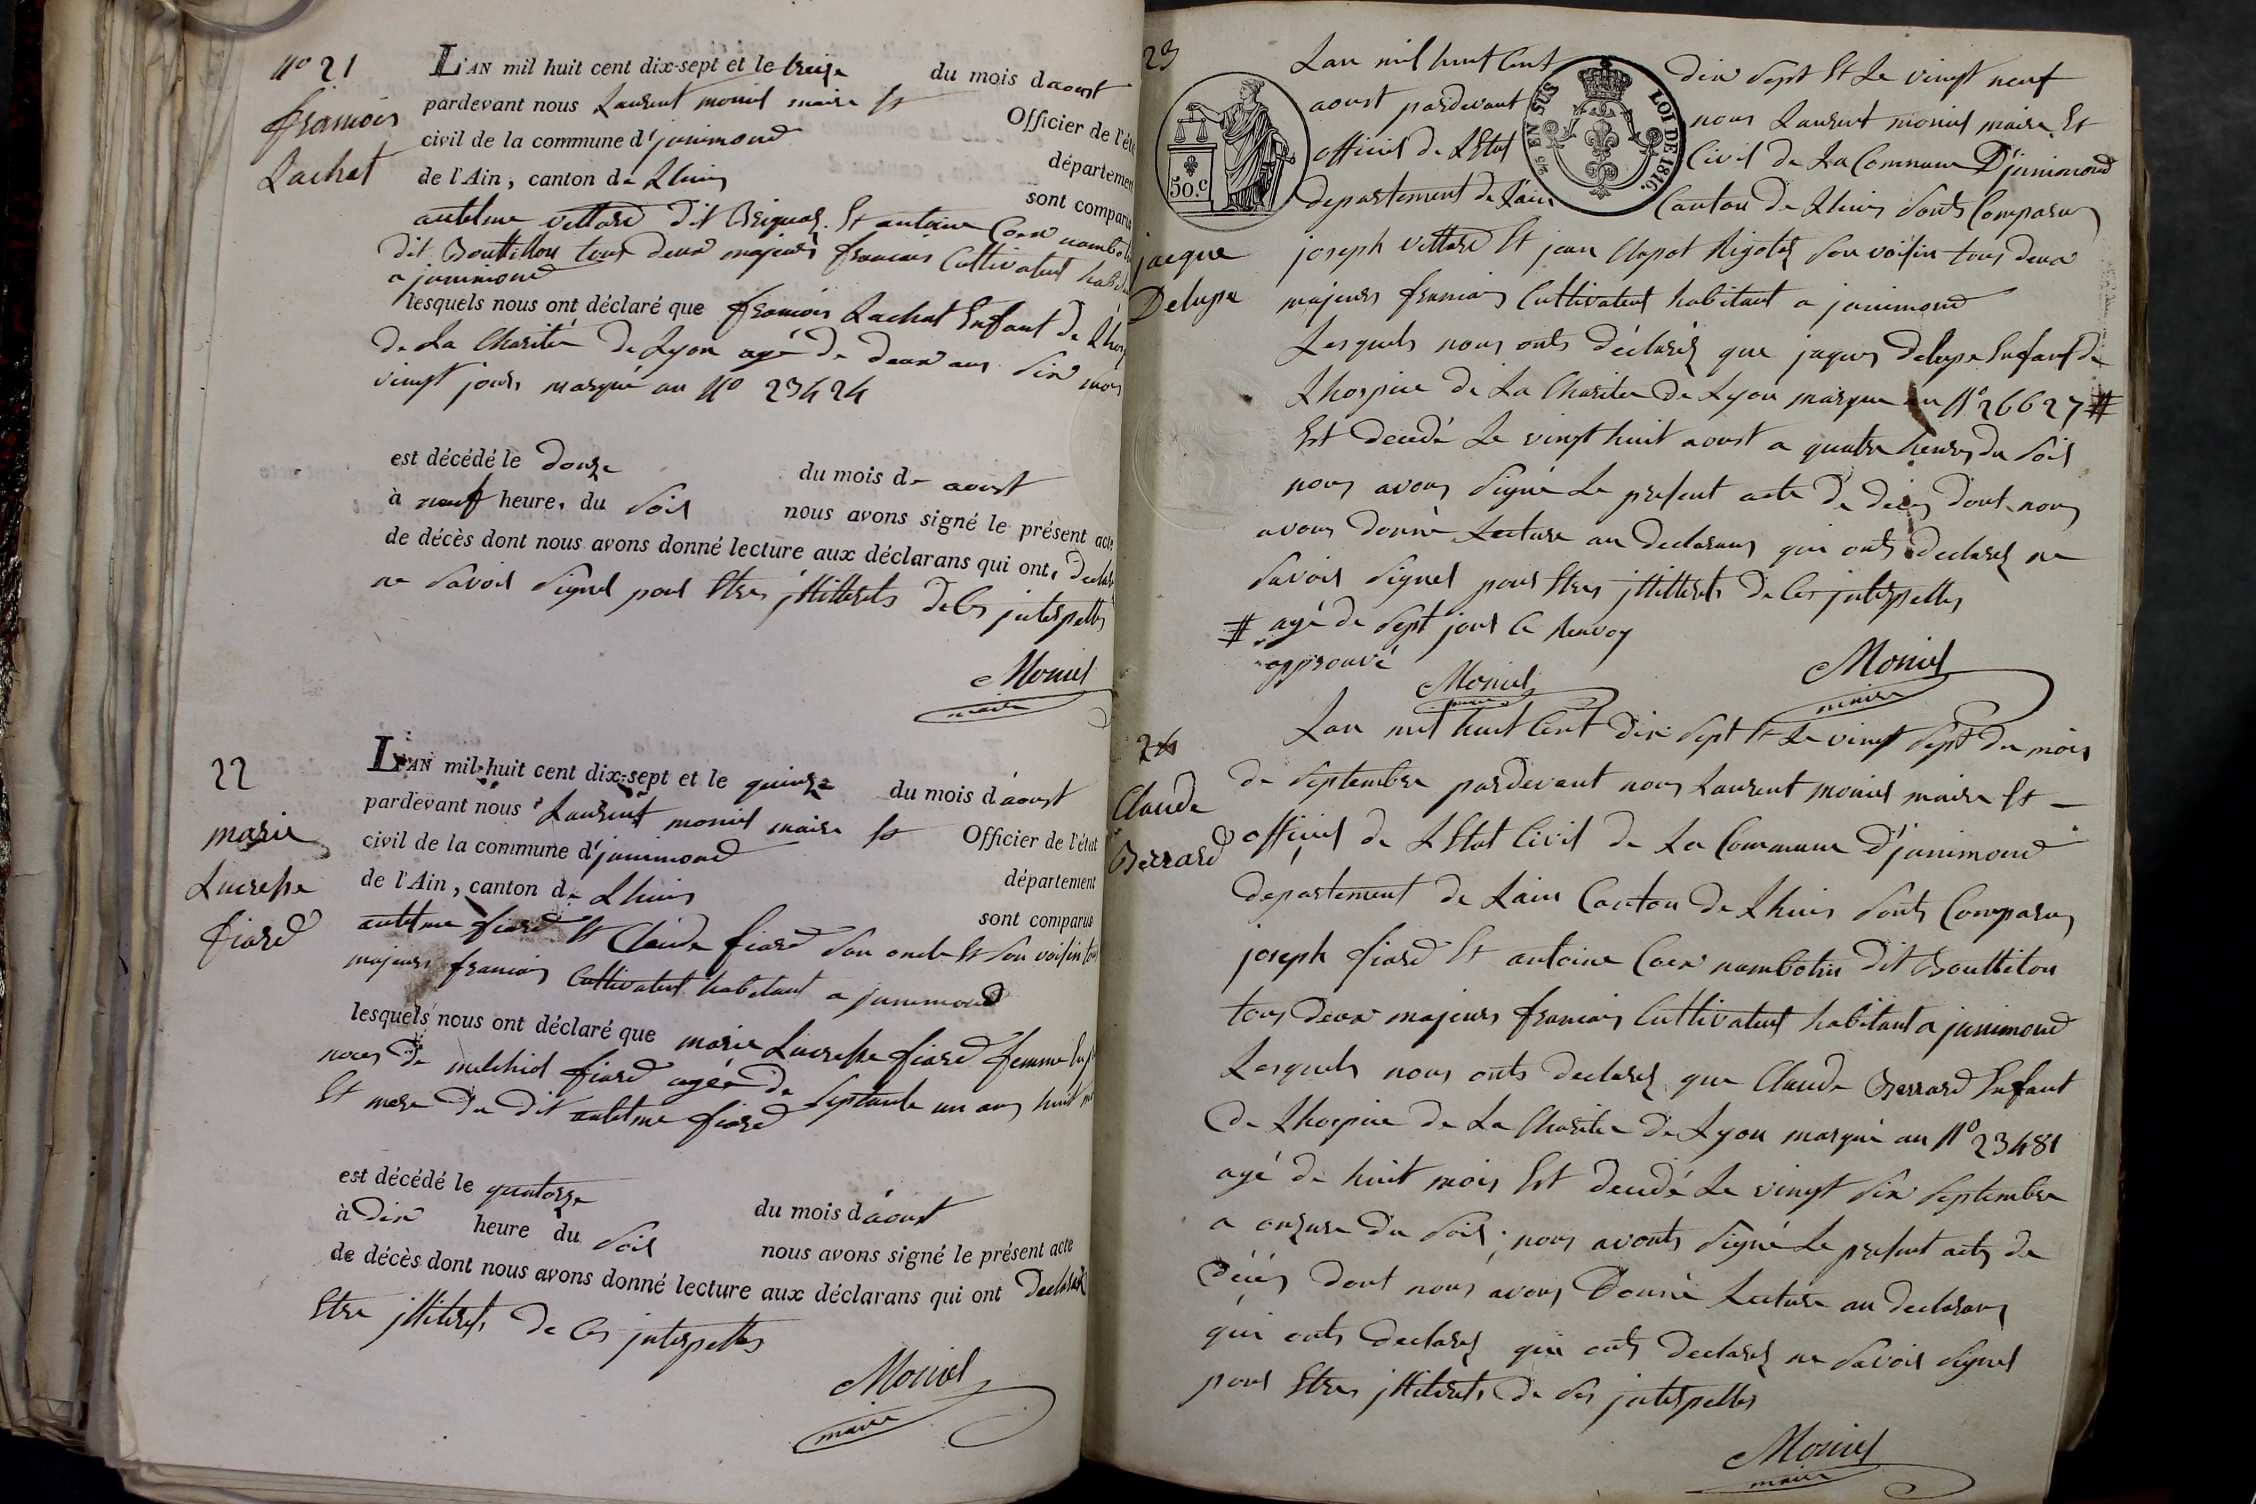 No 21
francois
Lachat
L'AN mil huit cent dix-sept et le treize du mois d aoust
pardevant nous Laurent monier maire et Officier de l'éta
civil de la commune d'junimond département
de l'Ain, canton de Lhuis sont comparus
antelme vettard dit Briquas. Et antoine Coex nambotin
dit Bouttillon tous deux majeurs francais Cultivateur habit
a junimond
lesquels nous ont déclaré que francois Lachat Enfant de Lhos
de La Charitée de Lyon agé de deux ans six mois
vingt jours marqué au No 23424
est décédé le douze du mois d- aoust
à neuf heure, du soir nous avons signé le présent acte
de décès dont nous avons donné lecture aux déclarans qui ont, declar
ne savoir signer pour Etres jllitterets de Ces jnterpelles
Monier
maire
22
marie
Lucresse
fiard
L'AN mil huit cent dix-sept et le quinze du mois d'aoust
pardevant nous Laurent monier maire et Officier de l'état
civil de la commune d'junimond département
de l'Ain, canton de Lhuis sont comparus
antelme fiard Et Claude fiard son oncle Et son voisin tous
majeurs francais Cultivateur habitant a junimond
lesquels nous ont déclaré que marie Lucresse fiard femme En
noces de melchior fiard agée de septante un ans huit m
Et mere du dit antelme fiard
est décédé le quatorze du mois d'aoust
à dix heure du soir nous avons signé le présent acte
de décès dont nous avons donné lecture aux déclarans qui ont declarer
Etre jlliterets de Ces jnterpelles
Monier
maire
23
jacque
Delupe
50.c
2/5 EN SUS LOI DE 1816.
Lan mil huit Cent dix sept Et Le vingt neuf
aoust pardevant nous Laurent monier maire Et
officier de LEtat Civil de La Commune D'junimond
departement de Lain Canton de Lhuis sonts Comparus
joseph vettard Et jean Clopot Rigolet son voisin tous deux
majeurs francais Cultivateur habitant a junimond
Lesquels nous onts déclarés que jaques delupe Enfant de
Lhospice de La Charitée de Lyon marque au No 26627 #
Est decedé Le vingt huit aoust a quatre heures du soir
nous avons signé Le present acte de deces dont nous
avons donné Lecture au declarans qui onts declarés ne
savoir signer pour Etres jllitterets de Ces jnterpelles
# agé de sept jour Ce Renvoy
approuvé
Monier
maire
Monier
maire
24
Claude
Berrard
Lan mil huit Cent dix sept Et Le vingt sept du mois
de septembre pardevant nous Laurent monier maire Et -
officier de LEtat Civil de La Commune D'junimond
departement de Lain Canton de Lhuis sonts Comparus
joseph fiard Et antoine Coex nambotin dit Bouttilon
tous deux majeurs francais Cultivateur habitant a junimond
Lesquels nous onts declarés que Claude Berrard Enfant
de Lhospice de La Charitée de Lyon marqué au No 23481
agé de huit mois Est decedé Le vingt six septembre
a onzure du soir; nous avonts signé Le present acte de
décés dont nous avons Donné Lecture au declarans
qui onts declarés qui onts declarés ne savoir signer
pour Etres jlliterets de ses jnterpelles
Monier
maire